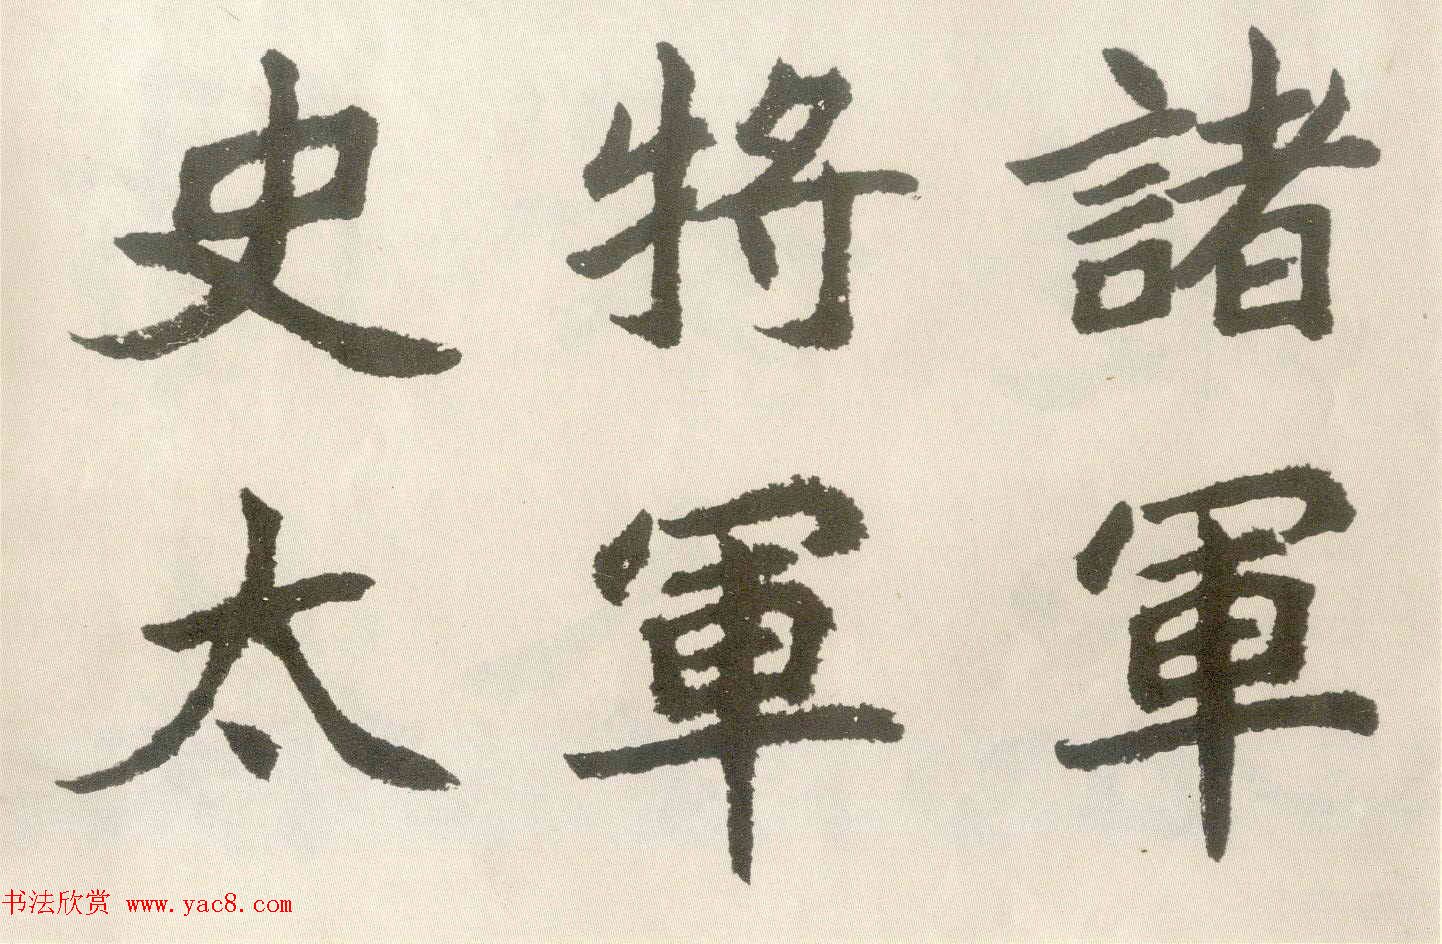 諸軍
將軍
史太
书法欣赏 www.yac8.com